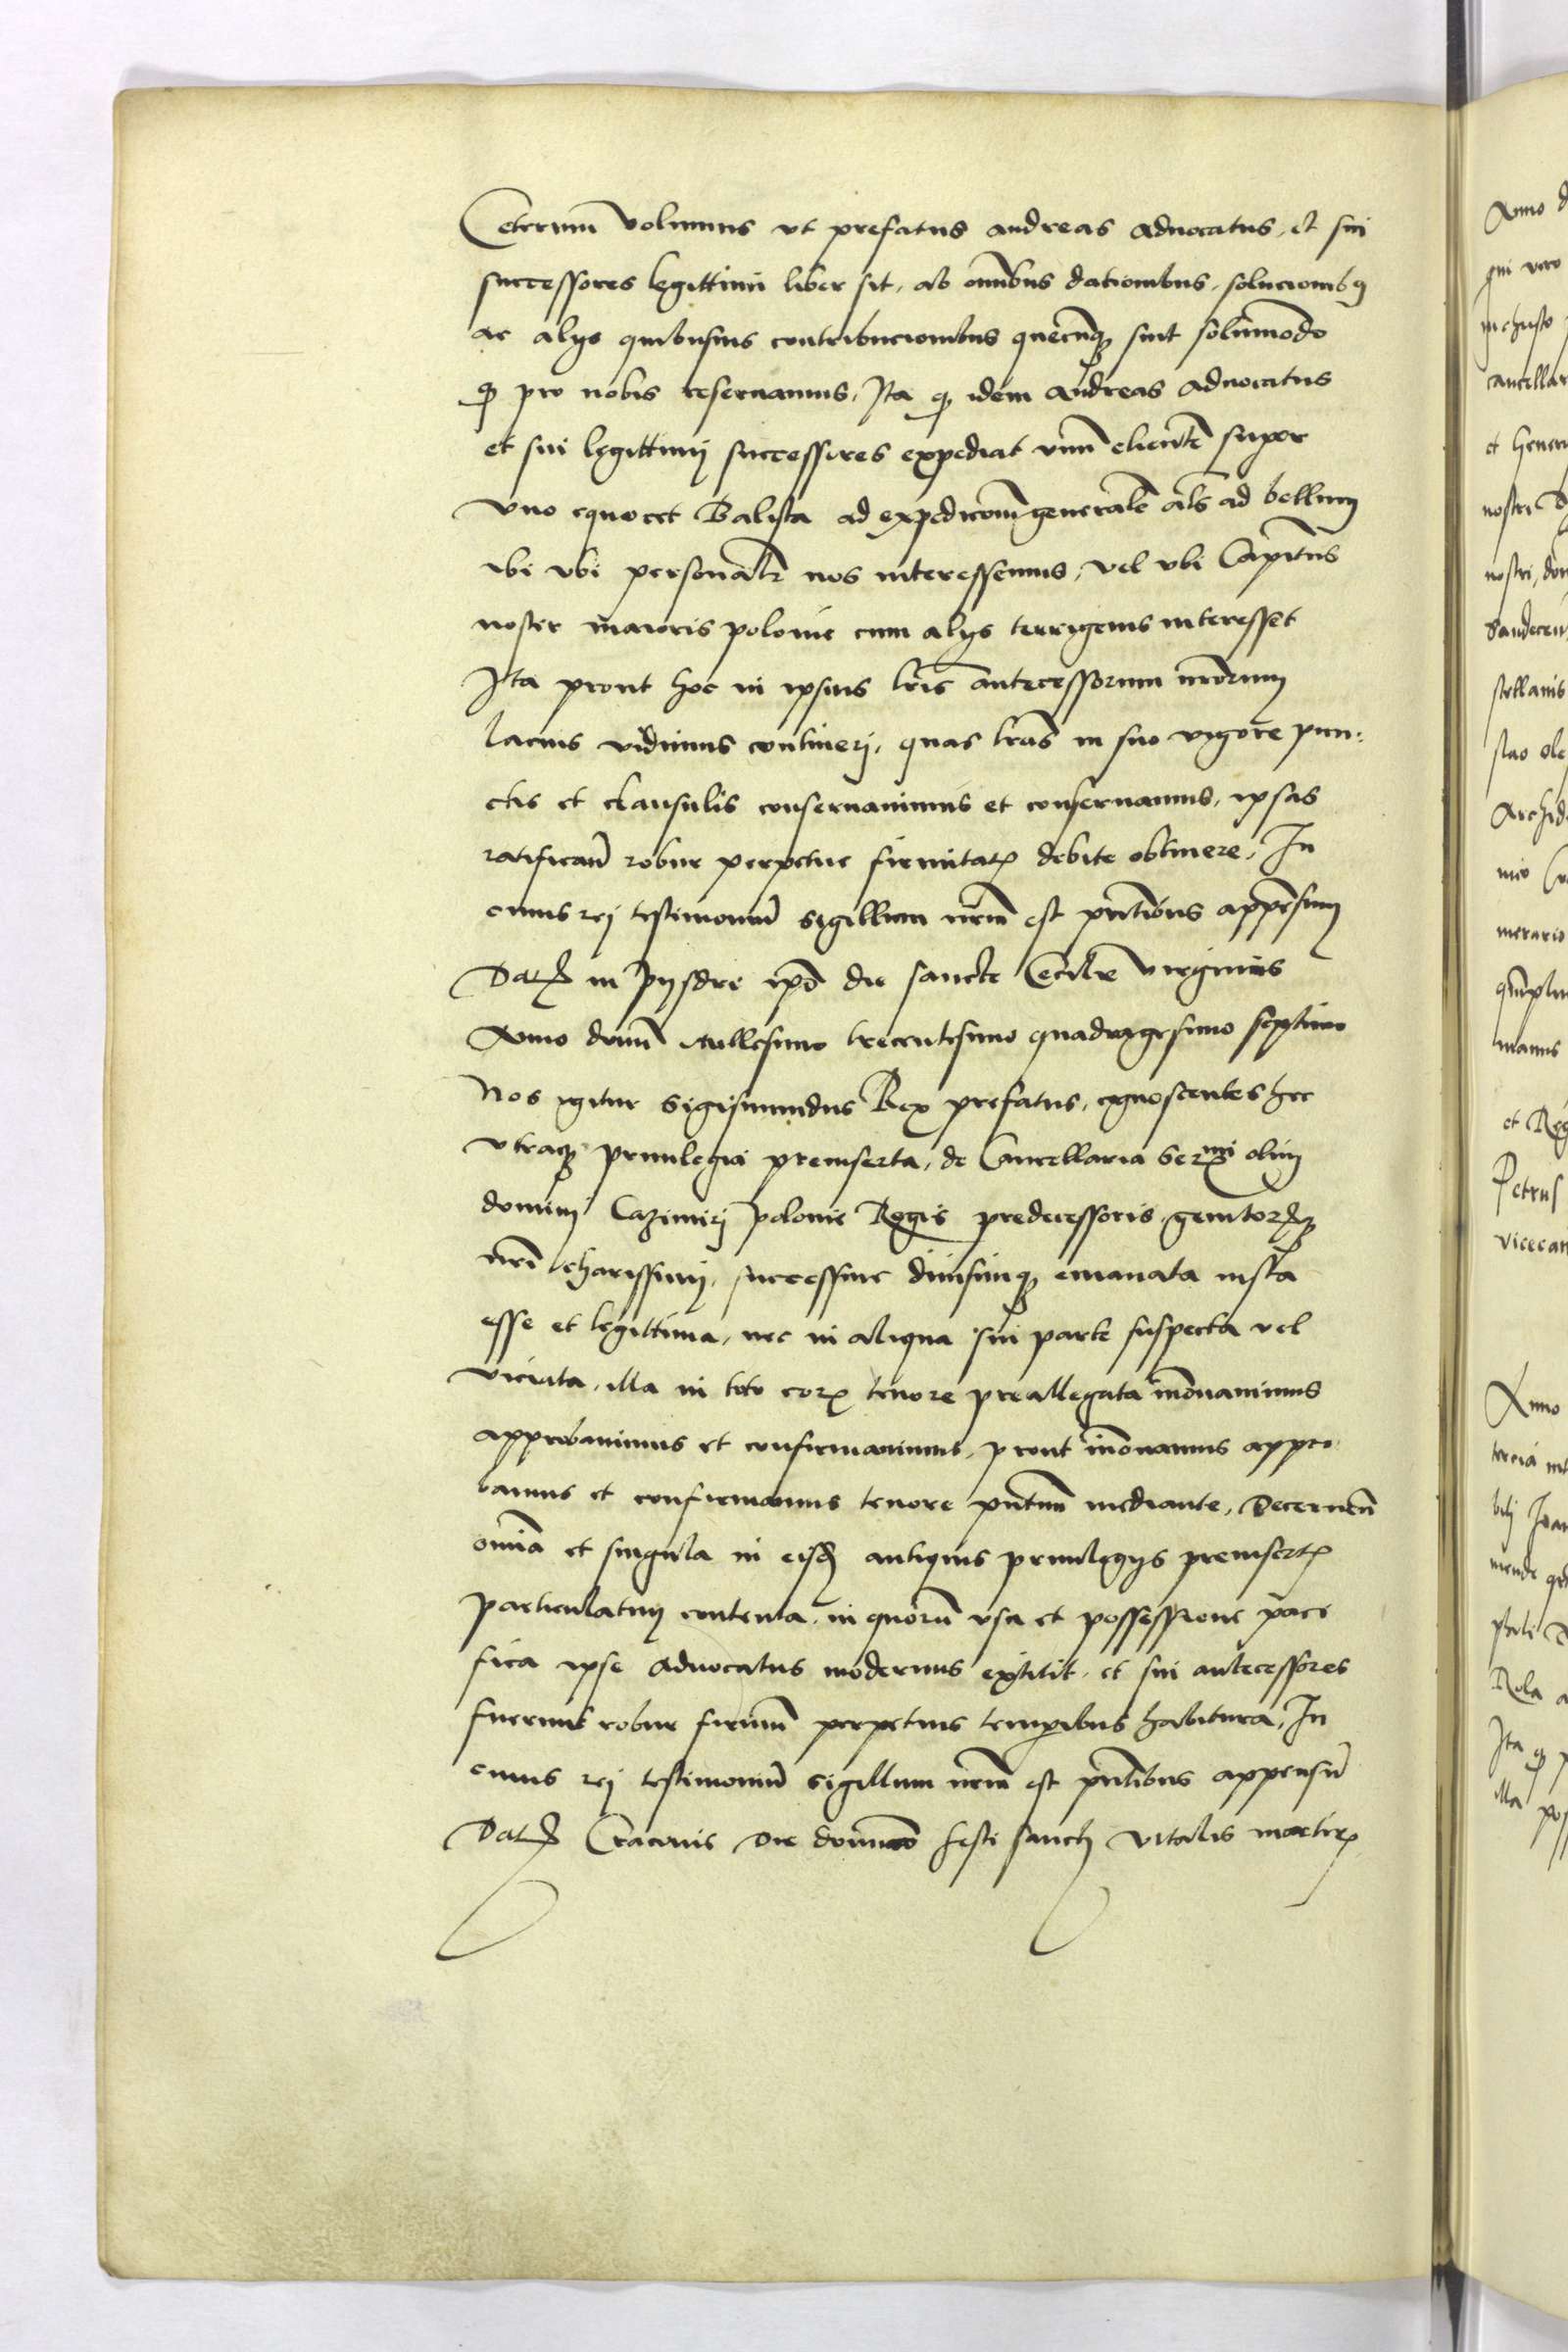 Ceterum volumus vt prefatus andreas aduocatus, et sui
successores legittimi liber sit, ab omnibus dationibus, solucionibus
ac alijs quibusuis contribucionibus quecunque sint solummodo
quod pro nobis reseruamus, Ita quod idem andreas aduocatus
et sui legittimj successores expediat vnum clientem super
vno equo cet Balista ad expedicionem generalem als ad bellum
vbi vbi personaliter nos interessemus, vel vbi Capitaneus
noster maioris polonie cum alijs terrigenis interesset
Ita prout hoc in ipsius lris antecessorum nrorum
lacius vidimus contineri, quas lras in suo vigore pun:
ctis et clausulis conseruauimus et conseruamus, ipsas
ratificantes robur perpetue firmitatis debite obtinere, In
cuius rei testimonium sigillum nrum est pntibus appensum
Dat in pijsdre ipso die sancte Cecilie virginis
Anno domini Millesimo trecentesimo quadragesimo septimo
Nos igitur Sigismundus Rex prefatus, cognoscentes hec
vtraque priuilegia preinserta, de Cancellaria Sermi olim
domini Cazimirj polonie Regis predecessoris, genitorisque
nri charissimj, successiue diuisimque emanata iusta
esse et legittima, nec in aliqua sui parte suspecta vel
viciata, illa in toto eorum tenore preallegata innouauimus
approbauimus et confirmauimus, prout innouamus appro
bamus et confirmamus tenore pntium mediante, Decernentes
omnia et singula in eisdem antiquis priuilegijs preinsertis
particulatim contenta, in quorum vsu et possessione paci
fica ipse aduocatus modernus extitit, et sui antecessores
fuerunt robur firmum perpetuis temporibus habitura, In
cuius rei testimonium sigillum nrum est pntibus appensum
Dat Cracouie die dominico festi sancti vitalis martiris